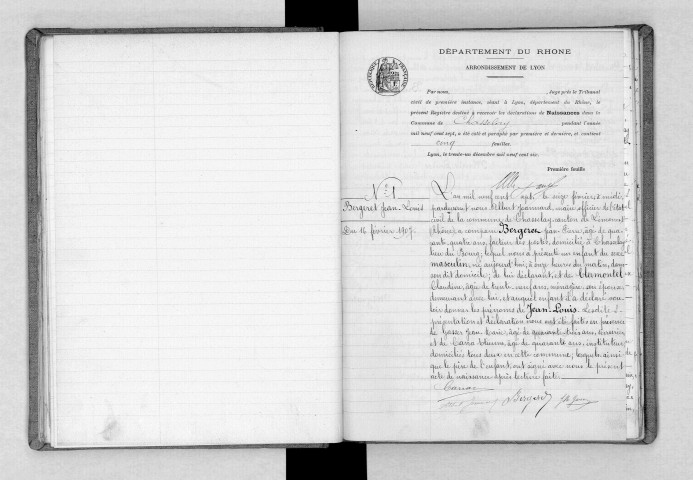 DÉPARTEMENT DU RHONE
ARRONDISSEMENT DE LYON
Par nous, , Juge près le Tribunal
civil de première instance, séant à Lyon, département du Rhône, le
présent Registre destiné à recevoir les déclarations de Naissances dans la
Commune de Chasselay pendant l'année
mil neuf cent sept, a été coté et paraphé par première et dernière, et contient
cinq feuilles.
Lyon, le trente-un décembre mil neuf cent six.
Première feuille
N° 1
Bergeret Jean-Louis
Du 16 février 1907.
L'an mil neuf cent sept, le seize février, à midi
pardevant nous Albert, maire officier de l'état
civil de la commune de Chasselay, canton de Limonest
(Rhône) a comparu Bergeret Jean-Pierre, âgé de qua-
rante-quatre ans, facteur des postes, domicilié à Chasselay
lieu du Bourg; lequel nous a présenté un enfant du sexe
masculin, né aujourd'hui, à onze heures du matin, dans
son dit domicile; de lui déclarant, et de Clamontel
Claudine, âgée de trente-neuf ans, ménagère, son épouse,
demeurant avec lui, et auquel enfant il a déclaré vou-
loir donner les prénoms de Jean-Louis. Lesdites
présentation et déclaration nous ont été faites en présence
de Jean-Marie, âgé de quarante-trois ans,
et de âgé de quarante ans, instituteur
domiciliés tous deux en cette commune; lesquels ainsi
que le père de l'enfant, ont signé avec nous le présent
acte de naissance après lecture faite.
Bergeret